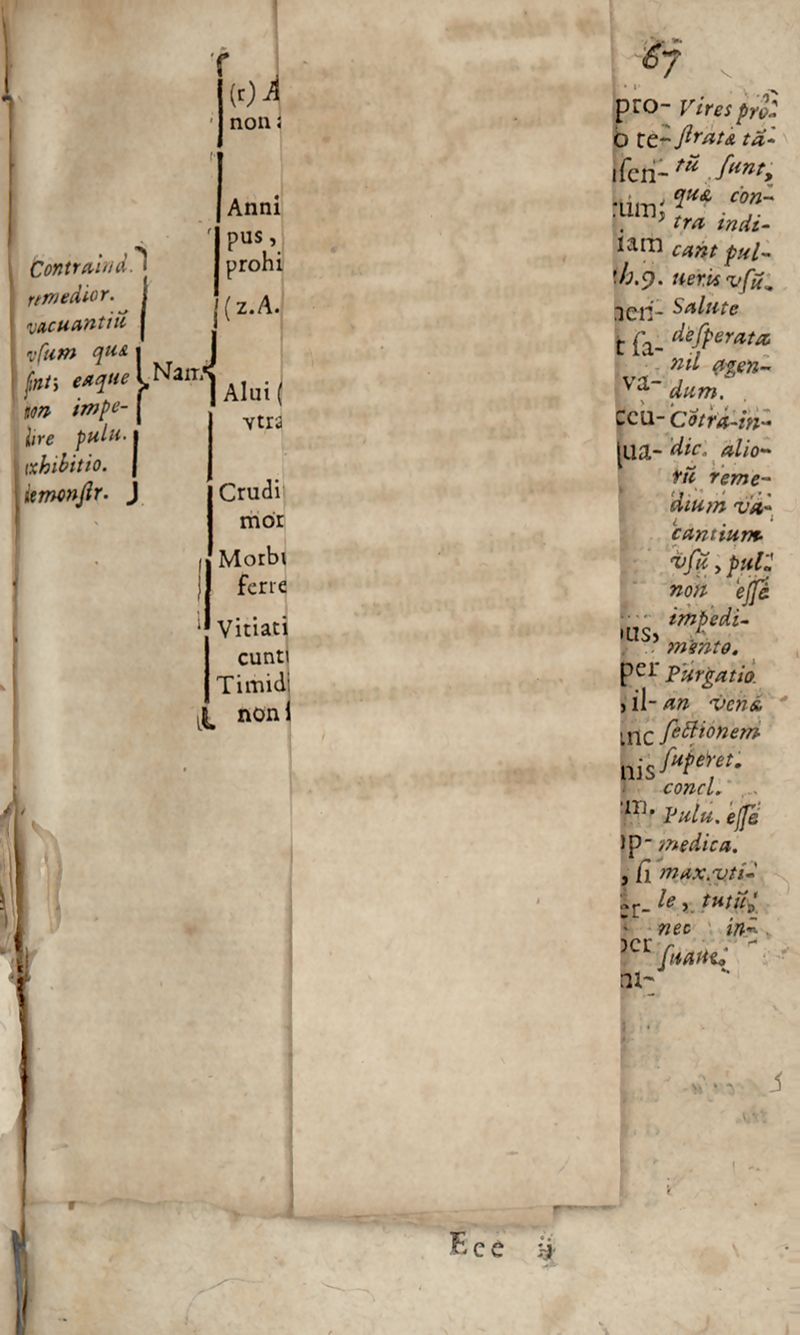 67
Contraind.
remedior.
vacuantiū
vsum quæ
sint; eaque
non impe-
dire pulu.
exhibitio.
demonstr.
Nam
(r) A
non
Anni
pus,
prohi
(z.A.
Alui (
vtra
Crudi
mor
Morbi
ferre
Vitiati
cunt
Timid
non
pro-
o re-
iseri-
rum;
iam
h.9.
neri-
t sa-
va-
ccu-
qua-
us,
per
, il-
inc
nis
m.
p-
, si
er-
per
ni-
Vires pro-
strata tā-
tū sunt,
quæ con-
tra indi-
cant pul-
ueris vsū.
Salute
desperata
nil agen-
dum.
Cōtra-in-
dic. alio-
rū reme-
dium va-
cantium
vsū, pul.
non esse
impedi-
mento.
Purgatio.
an venæ
sectionem
superet.
concl.
Pulu. esse
medica.
max. vti-
le, tutū,
nec in-
suaue.
Eee ij